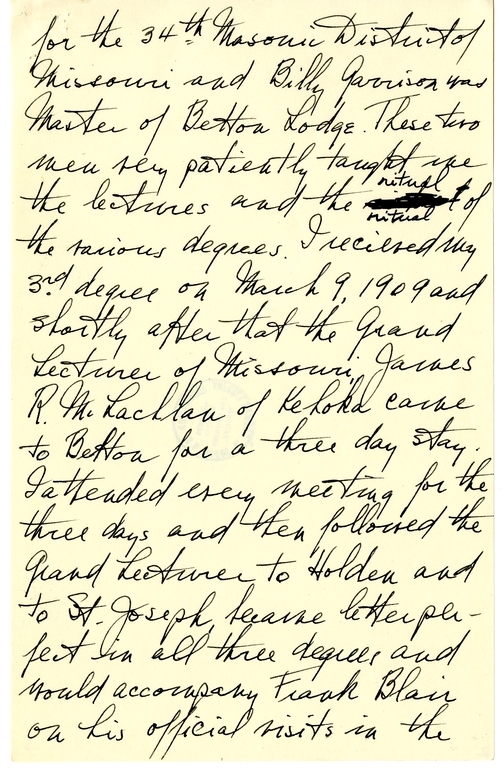 for the 34th Masonic District of
Missouri and Billy Garrison was
Master of Belton Lodge. These two
men very patiently taught me
ritual
the lectures and the of
ritual
the various degrees. I recieved my
3rd degree on March 9, 1909 and
shortly after that the Grand
Lecturer of Missouri, James
R. McLachlan of Kehoka came
to Belton for a three day stay.
I attended every meeting for the
three days and then followed the
Grand Lecturer to Holden and
to St. Joseph, became letter per-
fect in all three degrees and
would accompany Frank Blair
on his official visits in the